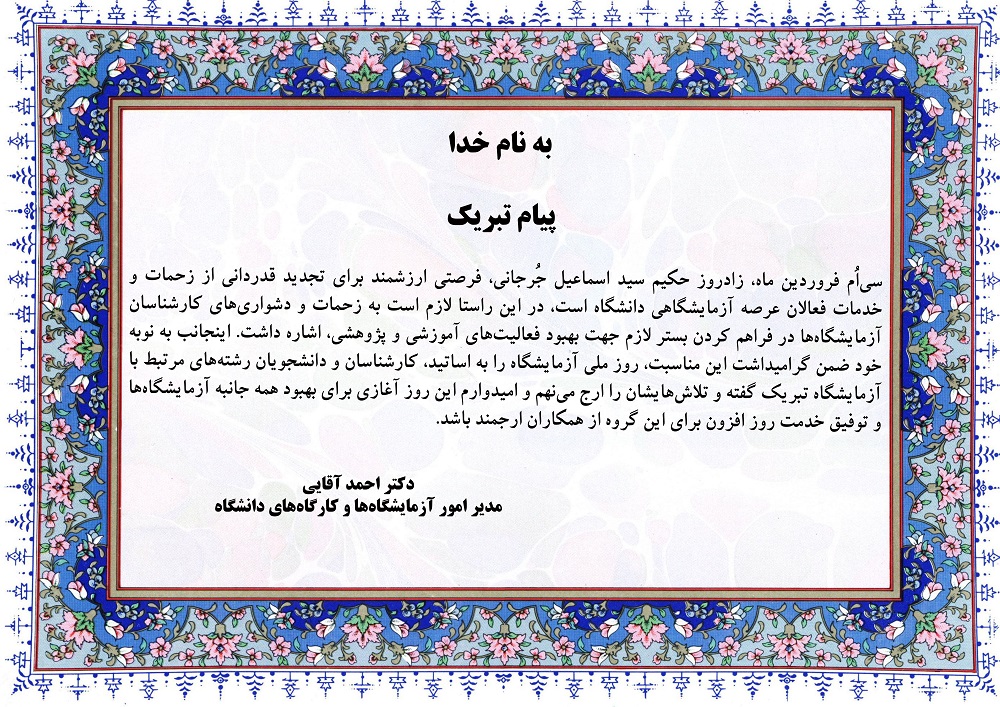 به نام خدا
پیام تبریک
سی‌اُم فروردین ماه، زادروز حکیم سید اسماعیل جُرجانی، فرصتی ارزشمند برای تجدید قدردانی از زحمات و
خدمات فعالان عرصه آزمایشگاهی دانشگاه است، در این راستا لازم است به زحمات و دشواری‌های کارشناسان
آزمایشگاه‌ها در فراهم کردن بستر لازم جهت بهبود فعالیت‌های آموزشی و پژوهشی، اشاره داشت. اینجانب به نوبه
خود ضمن گرامیداشت این مناسبت، روز ملی آزمایشگاه را به اساتید، کارشناسان و دانشجویان رشته‌های مرتبط با
آزمایشگاه تبریک گفته و تلاش‌هایشان را ارج می‌نهم و امیدوارم این روز آغازی برای بهبود همه جانبه آزمایشگاه‌ها
و توفیق خدمت روز افزون برای این گروه از همکاران ارجمند باشد.
دکتر احمد آقایی
مدیر امور آزمایشگاه‌ها و کارگاه‌های دانشگاه